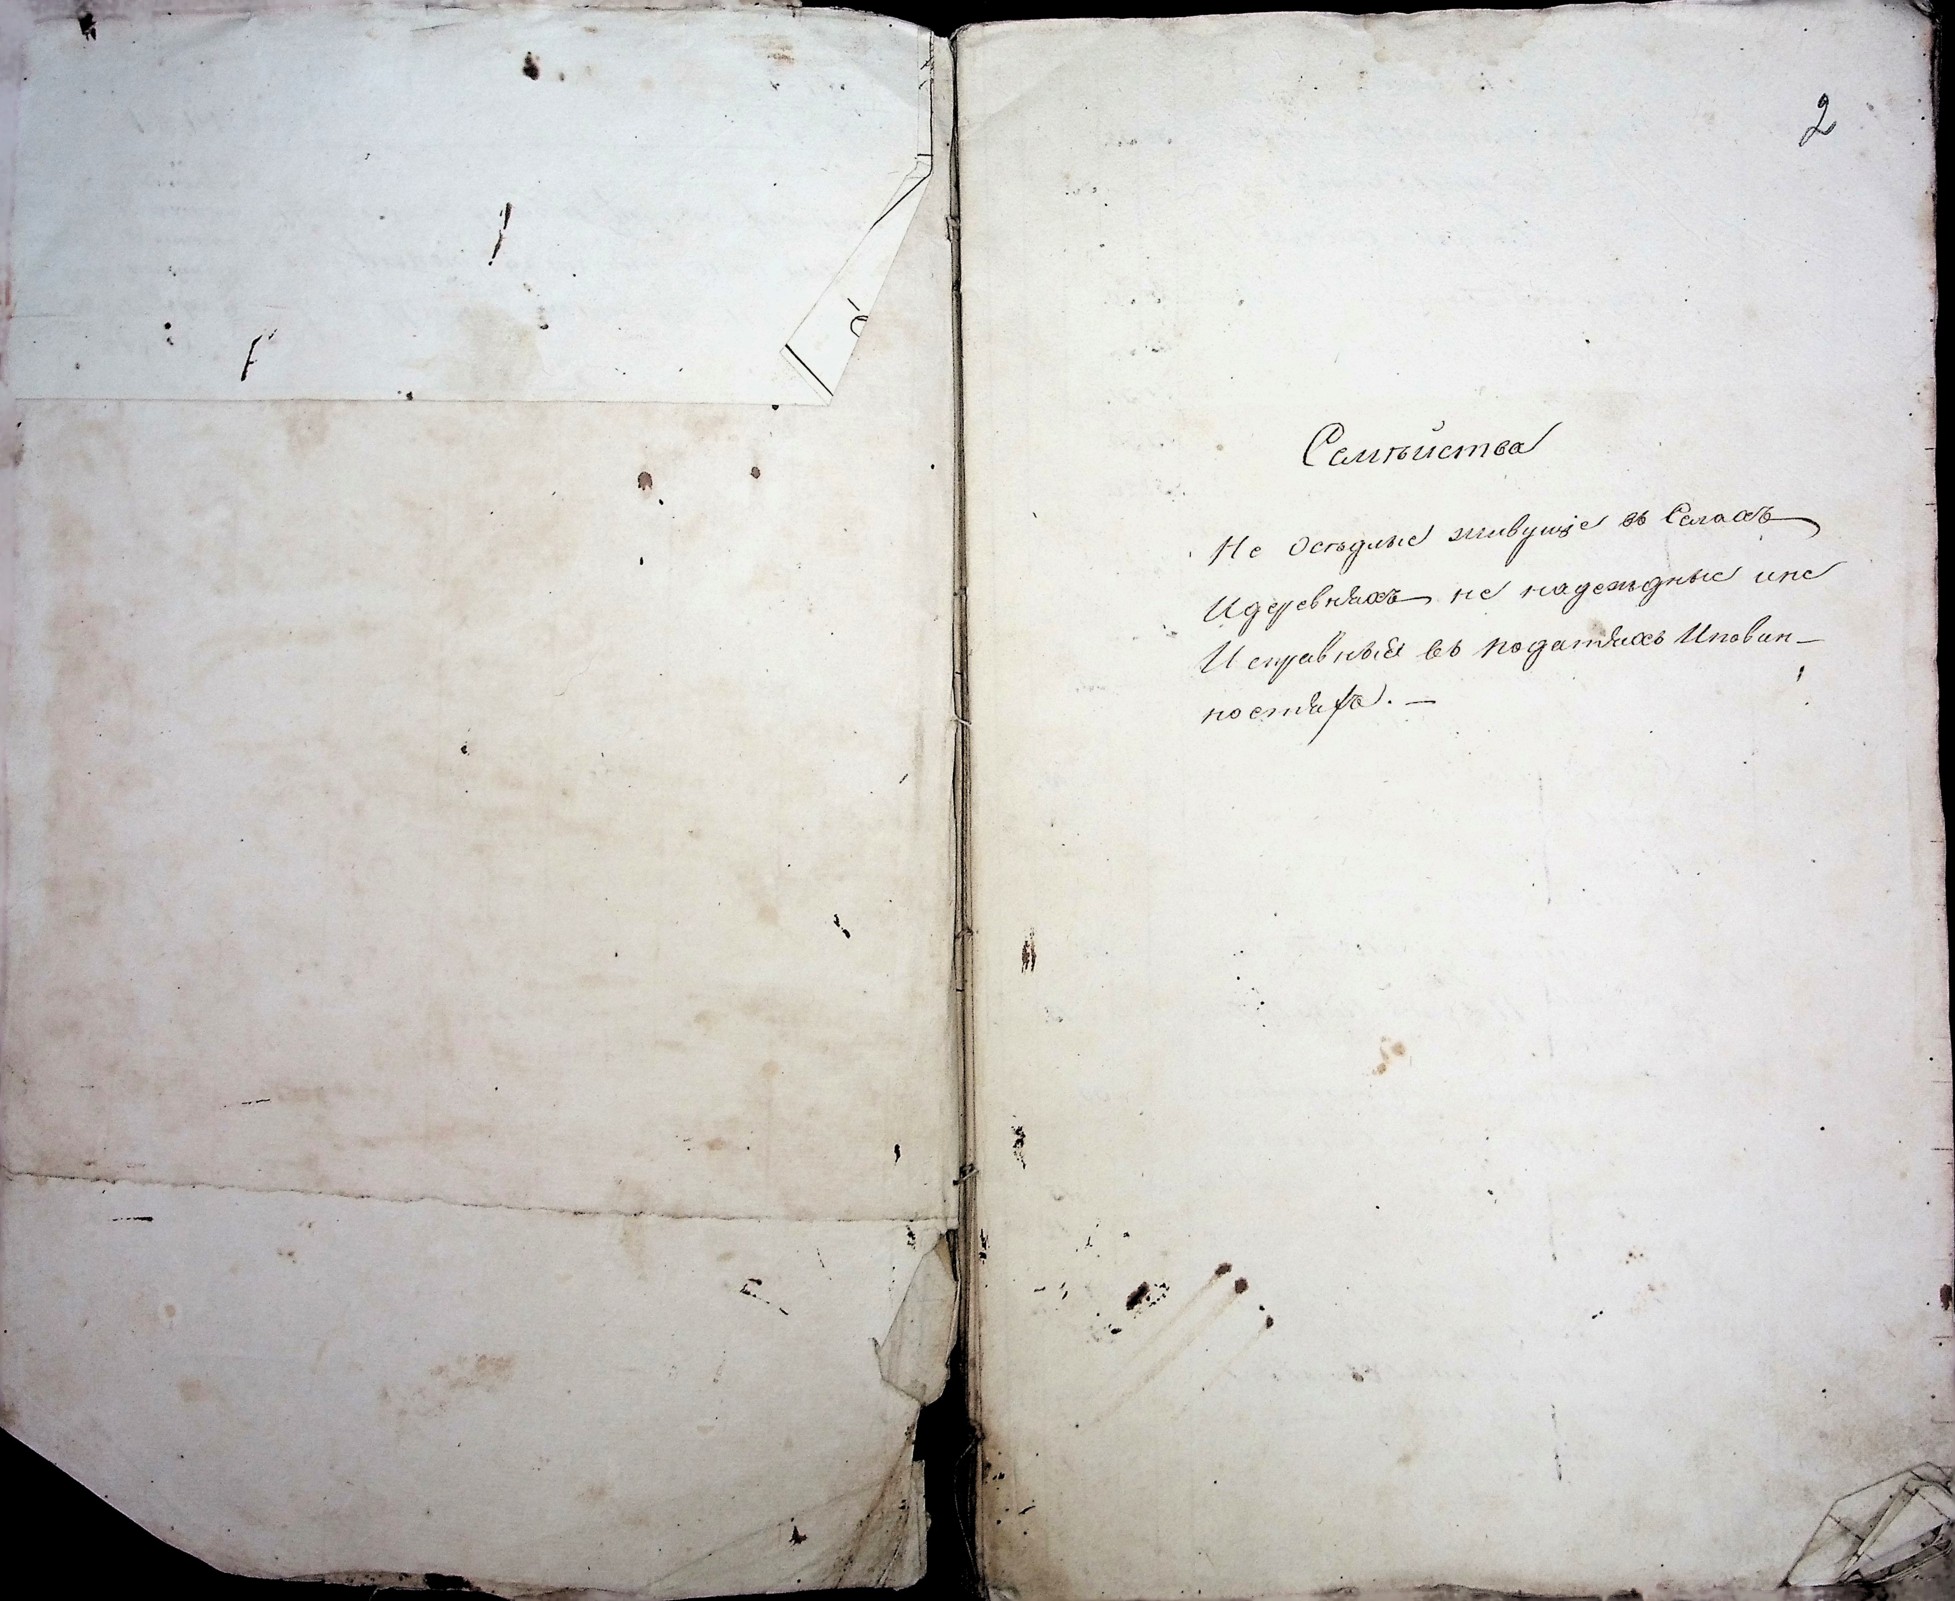 2
Семѣйства
Не осѣдлые живущіе въ Селахъ
Идеревняхъ не надежные ине
Исправный въ податяхъ Иповин-
ностяхъ. —